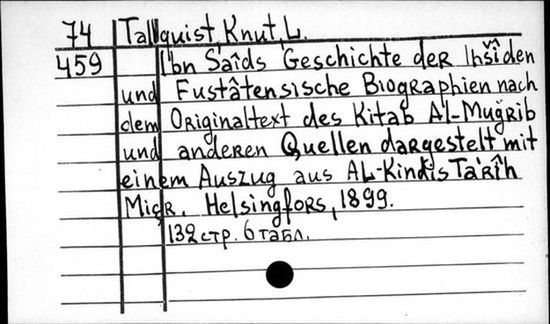 74 Tallquist, Knut, L.
459 Ibn Saîds Geschichte der Ihšîden
und Fustâtensische Biographien nach
dem Originaltext des Kitab Al-Muğrib
und anderen Quellen dargestelt mit
einem Auszug aus Al-Kindîs Ta'rîh
Miçr. Helsingfors, 1899.
132 стр. 6 табл.